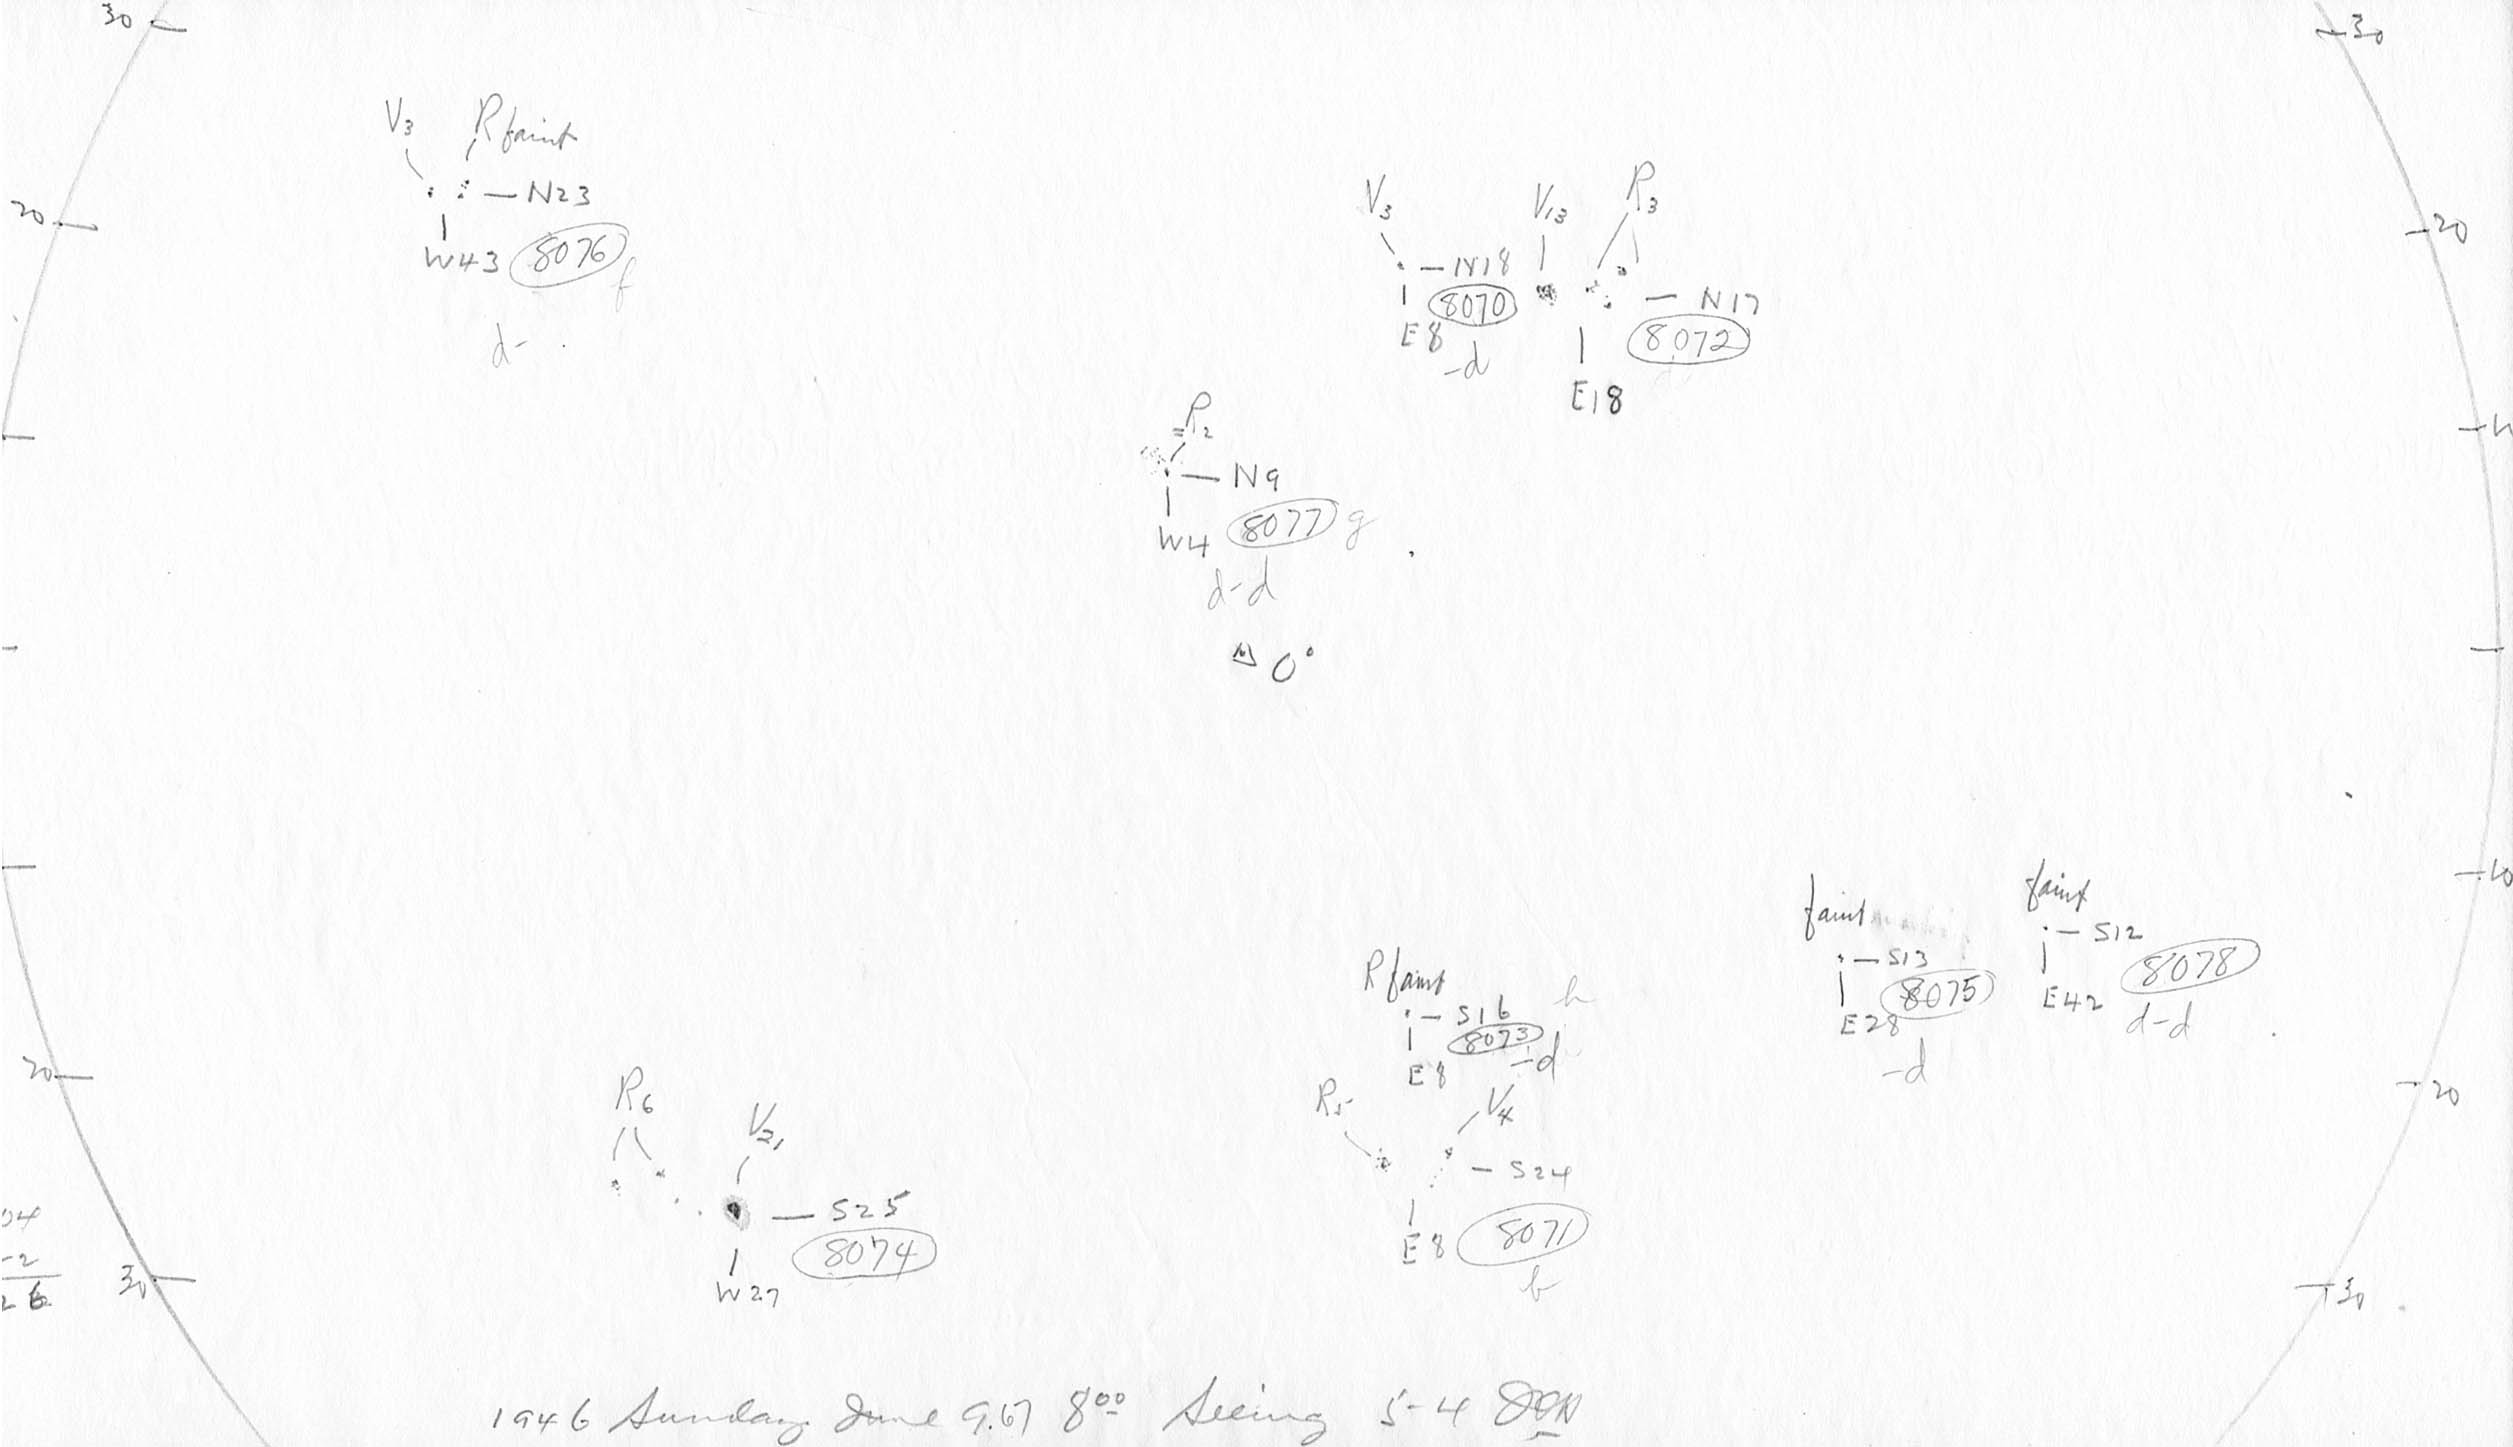 30
30
V3 R faint
N23
20
W43 8076 f
d-
V3 V13 R3
20
N18
8070
E8
-d
N17
8072
E18
R2
N9
W4 8077 g
d-d
0°
10
faint
S12
8078
E42
d-d
faint
S13
8075
E28
-d
R faint
S16 h
8073
E8 -d
20
20
R6 V21
S25
8074
W27
R5 V4
S24
E8 8071
b
04
-2
26
30
30
1946 Sunday June 9.67 800 Seeing 5-4